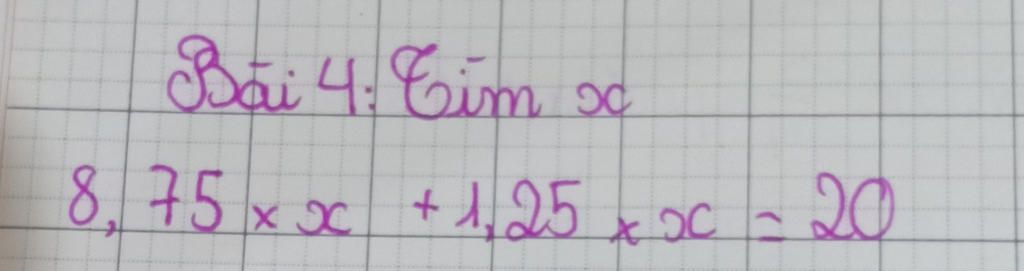 Bài 4: Tìm x
8,75 × x + 1,25 × x = 20